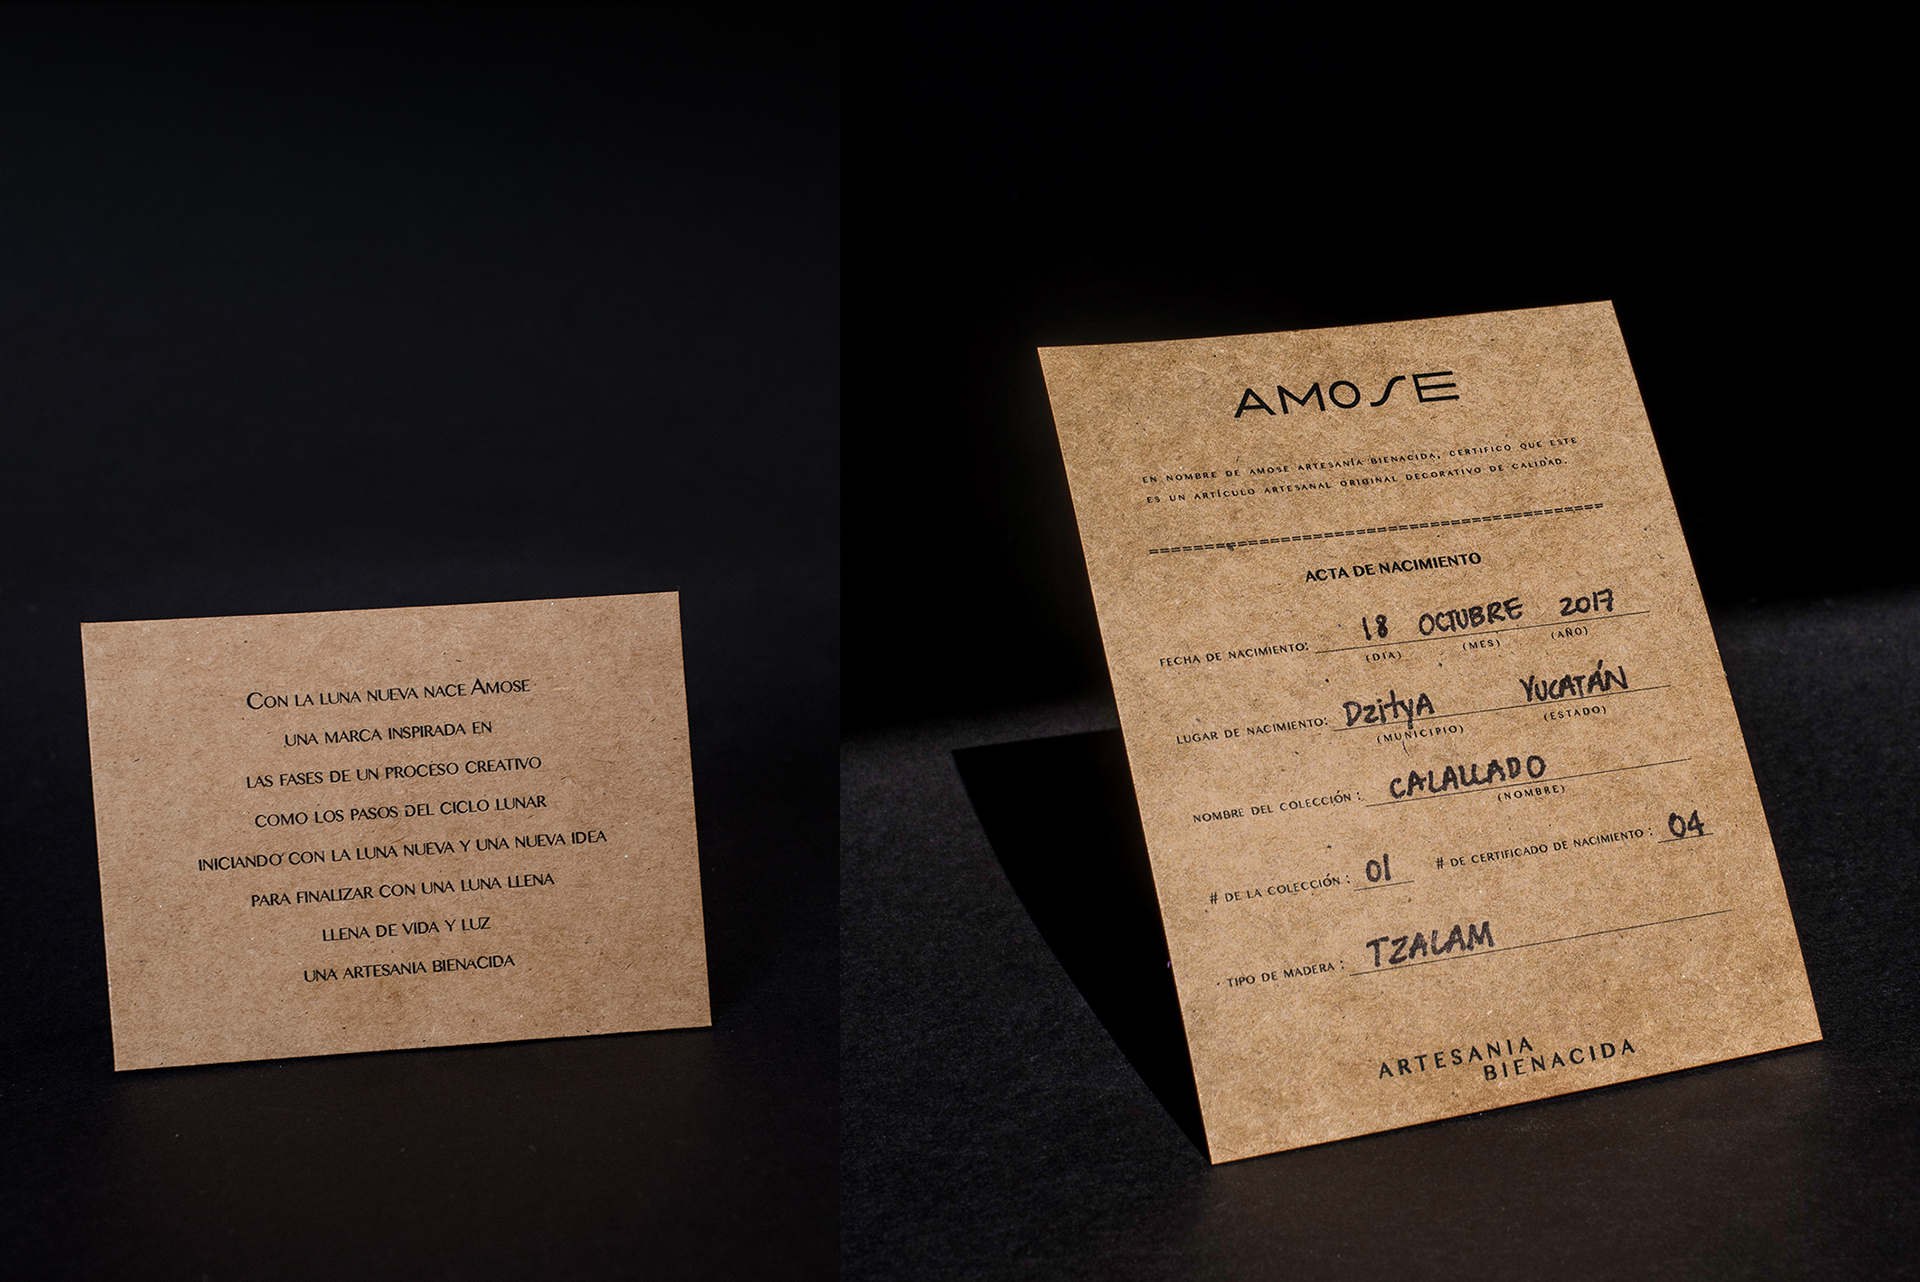 Con la luna nueva nace Amose
una marca inspirada en
las fases de un proceso creativo
como los pasos del ciclo lunar
iniciando con la luna nueva y una nueva idea
para finalizar con una luna llena
llena de vida y luz
una artesania bienacida
AMOSE
EN NOMBRE DE AMOSE ARTESANÍA BIENACIDA, CERTIFICO QUE ESTE
ES UN ARTÍCULO ARTESANAL ORIGINAL DECORATIVO DE CALIDAD.
ACTA DE NACIMIENTO
FECHA DE NACIMIENTO: 18 OCTUBRE 2017
(DIA) (MES) (AÑO)
LUGAR DE NACIMIENTO: DzityA YUCATÁN
(MUNICIPIO) (ESTADO)
NOMBRE DEL COLECCIÓN : CALALLADO
(NOMBRE)
# DE LA COLECCIÓN : 01 # DE CERTIFICADO DE NACIMIENTO : 04
TIPO DE MADERA : TZALAM
ARTESANIA
BIENACIDA